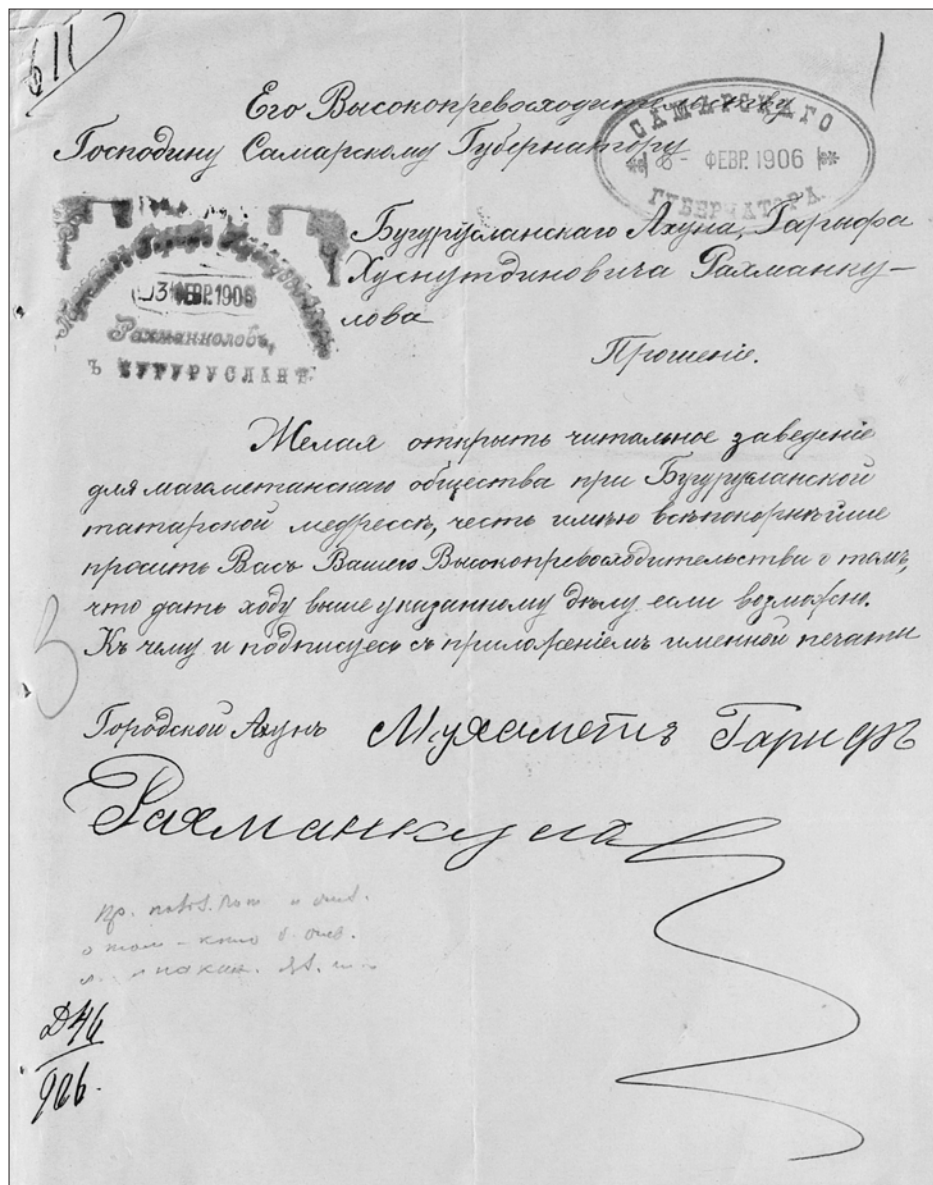 611
Его Высокопревосходительству
Господину Самарскому Губернатору
САМАРСКАГО
8 - ФЕВР. 1906
ГУБЕРНАТОРА
Бугурусланскаго Ахуна, Гарифа
Хуснутдиновича Рахманку-
лова
3 ФЕВР. 1906
Рахманколовъ,
ъ БУГУРУСЛАНѢ.
Прошеніе.
Желая открыть читальное заведеніе
для магометанскаго общества при Бугурусланской
татарской медрессѣ, честь имѣю всѣпокорнѣйше
просить Васъ Вашего Высокопревосходительства о томъ,
что дать ходу выше указанному дѣлу если возможно.
Къ чему и подписуюсь съ приложеніемъ именной печати
Городской Ахунъ Мухаметъ Гарифъ
Рахманкулов
Д 46
906.